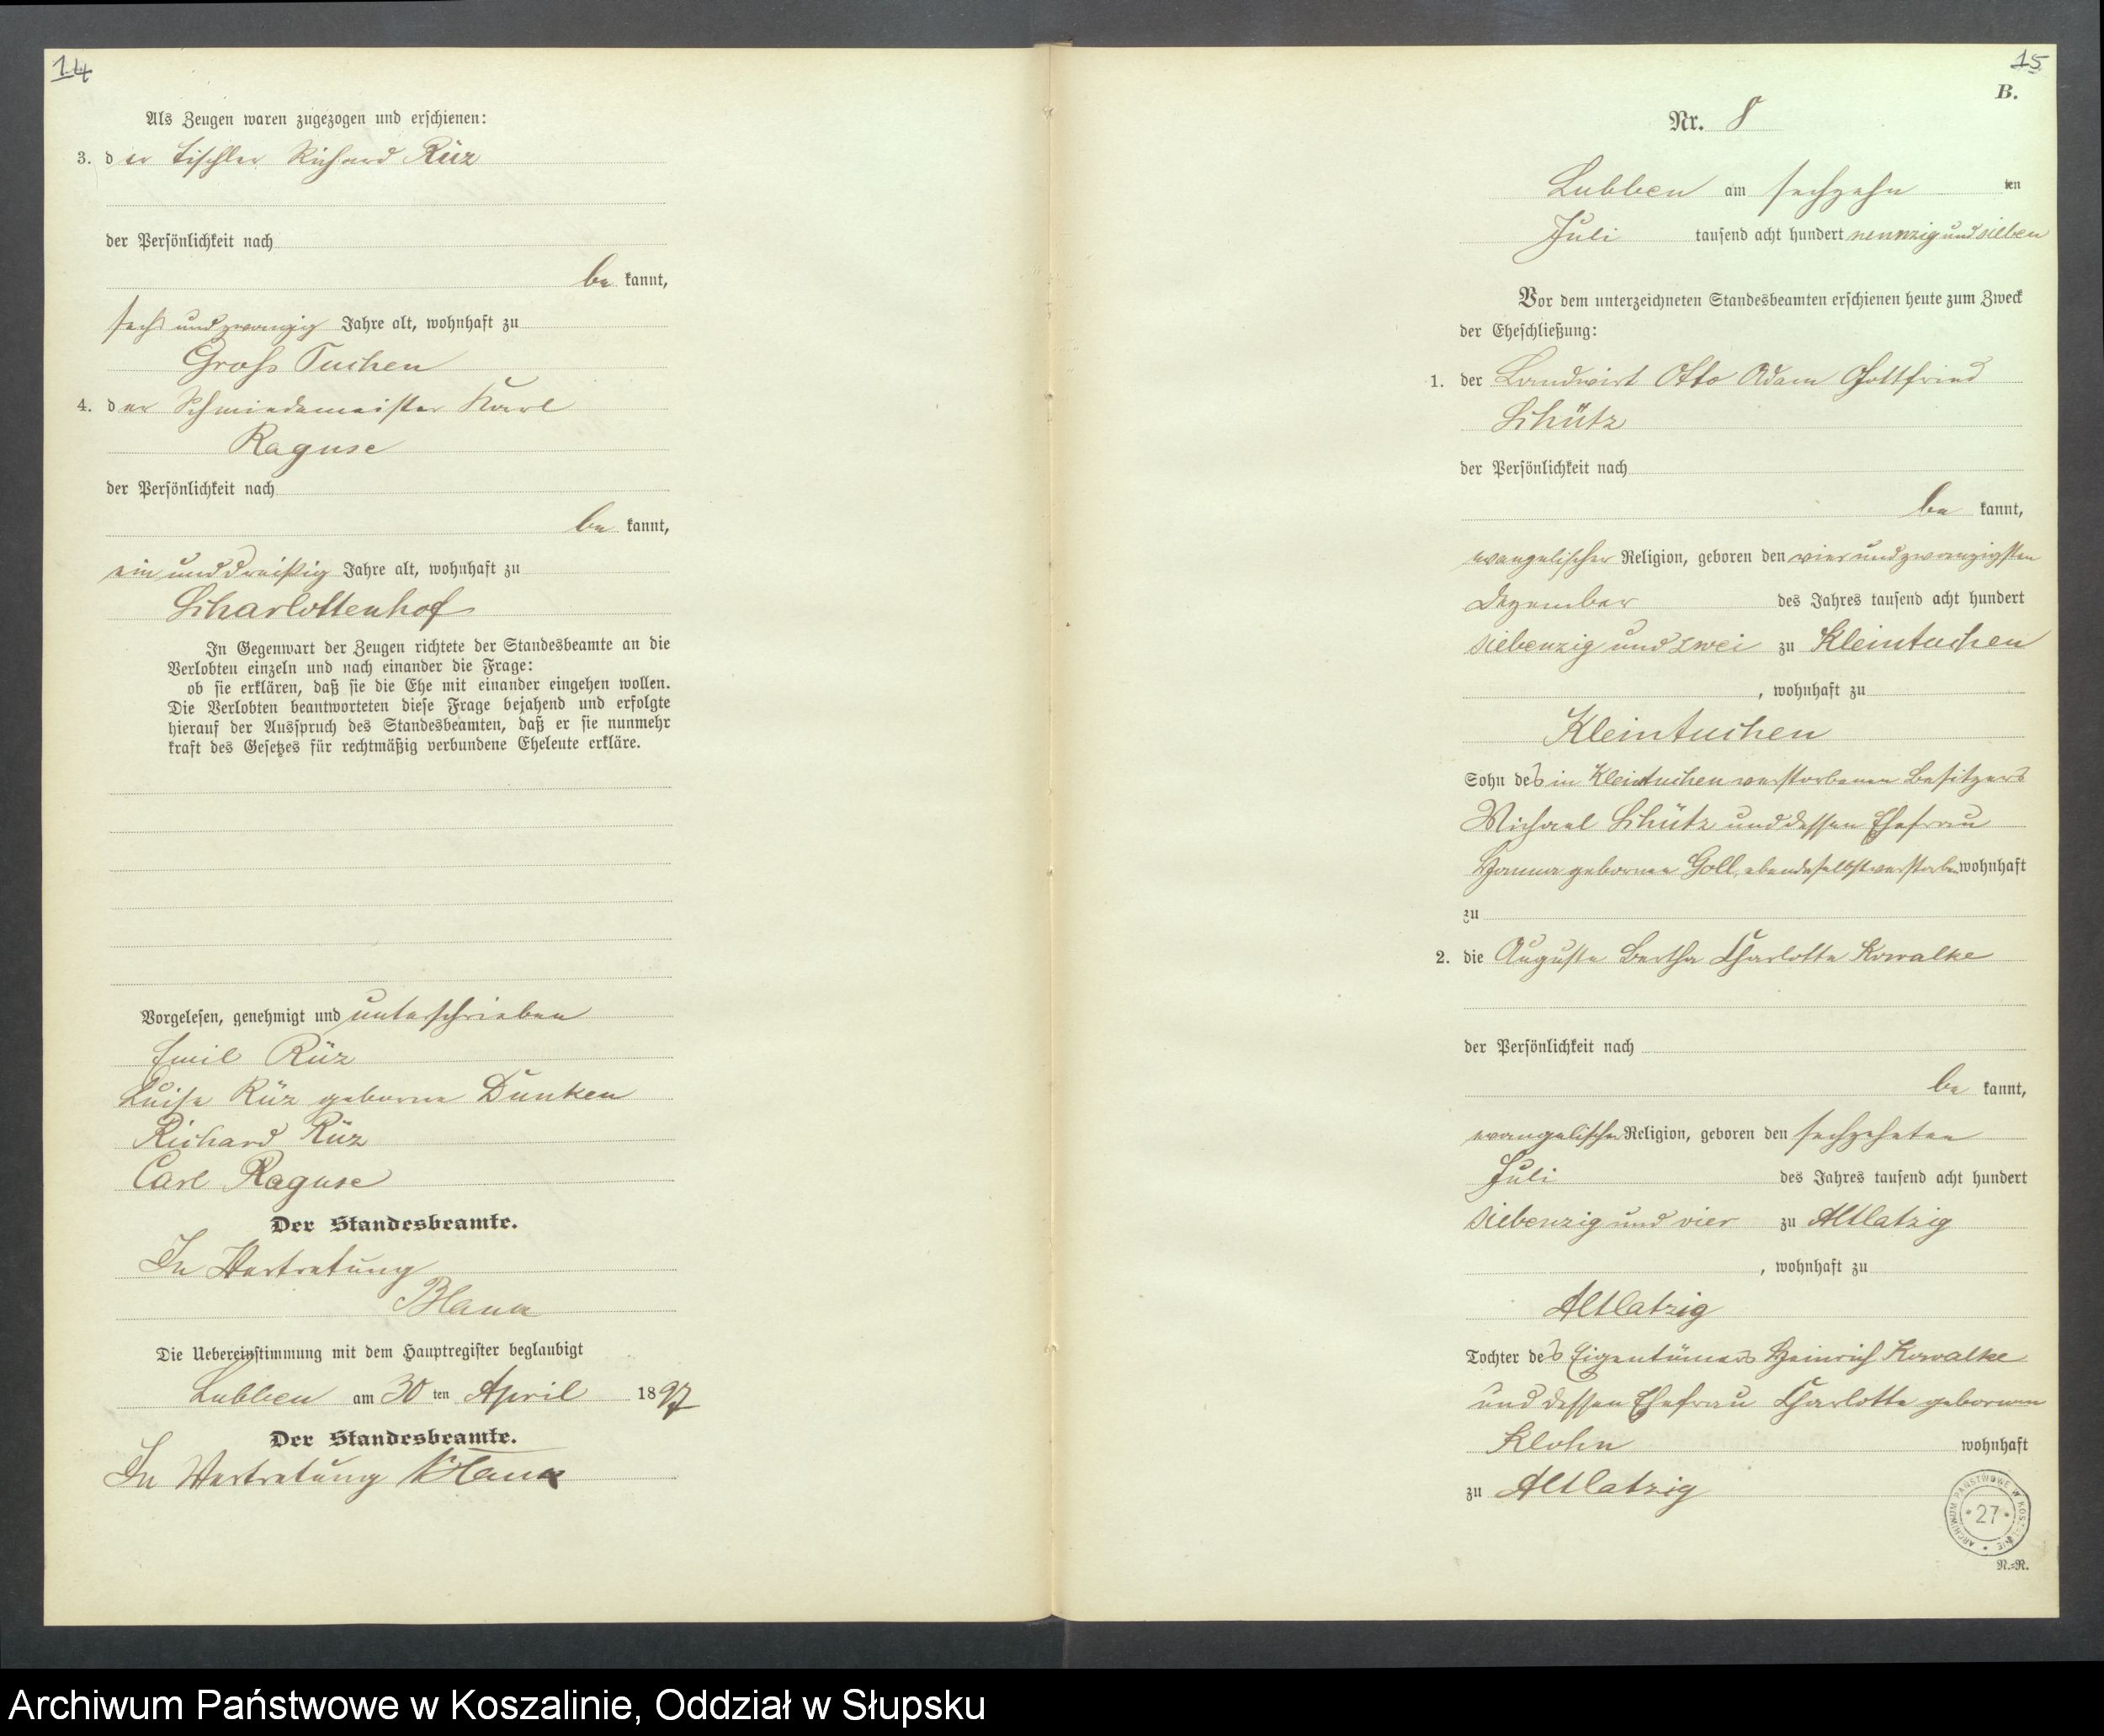 14
Als Zeugen waren zugezogen und erschienen:
3. der Tischler Richard Rüz
der Persönlichkeit nach
be kannt,
sechs und zwanzig Jahre alt, wohnhaft zu
Gross Tuchen
4. der Schmiedemeister Karl
Raguse
der Persönlichkeit nach
be kannt,
ein und dreißig Jahre alt, wohnhaft zu
Scharlottenhof
In Gegenwart der Zeugen richtete der Standesbeamte an die
Verlobten einzeln und nach einander die Frage:
ob sie erklären, daß sie die Ehe mit einander eingehen wollen.
Die Verlobten beantworteten diese Frage bejahend und erfolgte
hierauf der Ausspruch des Standesbeamten, daß er sie nunmehr
kraft des Gesetzes für rechtmäßig verbundene Eheleute erkläre.
Vorgelesen, genehmigt und unterschrieben
Emil Rüz
Luise Rüz geborne Dunken
Richard Rüz
Carl Raguse
Der Standesbeamte.
In Vertretung
Die Uebereinstimmung mit dem Hauptregister beglaubigt
Lubben am 30 ten April 1897
Der Standesbeamte.
In Vertretung
15
B.
Nr. 8
Lubben am sechzehn ten
Juli tausend acht hundert neunzig und sieben
Vor dem unterzeichneten Standesbeamten erschienen heute zum Zweck
der Eheschließung:
1. der Landwirt Otto Adam Gottfried
Schütz
der Persönlichkeit nach
be kannt,
evangelischer Religion, geboren den vier und zwanzigsten
Dezember des Jahres tausend acht hundert
siebenzig und zwei zu Kleintuchen
, wohnhaft zu
Kleintuchen
Sohn des in Kleintuchen verstorbenen Besitzers
Michael Schütz und dessen Ehefrau
Hanna geborene Goll, ebendaselbst verstorben wohnhaft
zu
2. die Auguste Bertha Charlotte Kowalke
der Persönlichkeit nach
be kannt,
evangelischer Religion, geboren den sechzehnten
Juli des Jahres tausend acht hundert
siebenzig und vier zu Altlatzig
, wohnhaft zu
Altlatzig
Tochter des Eigentümers Heinrich Kowalke
und dessen Ehefrau Charlotte geborenen
Klohn wohnhaft
zu Altlatzig
ARCHIWUM PAŃSTWOWE W KOSZALINIE
* 27 *
N.=R.
Archiwum Państwowe w Koszalinie, Oddział w Słupsku